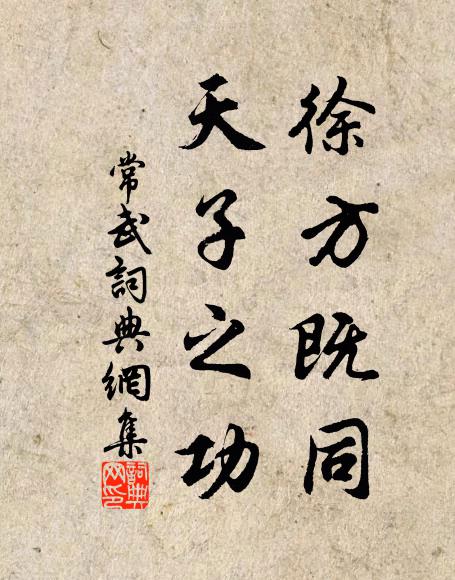 徐方既同
天子之功
常武詞典網集
詞典
网印